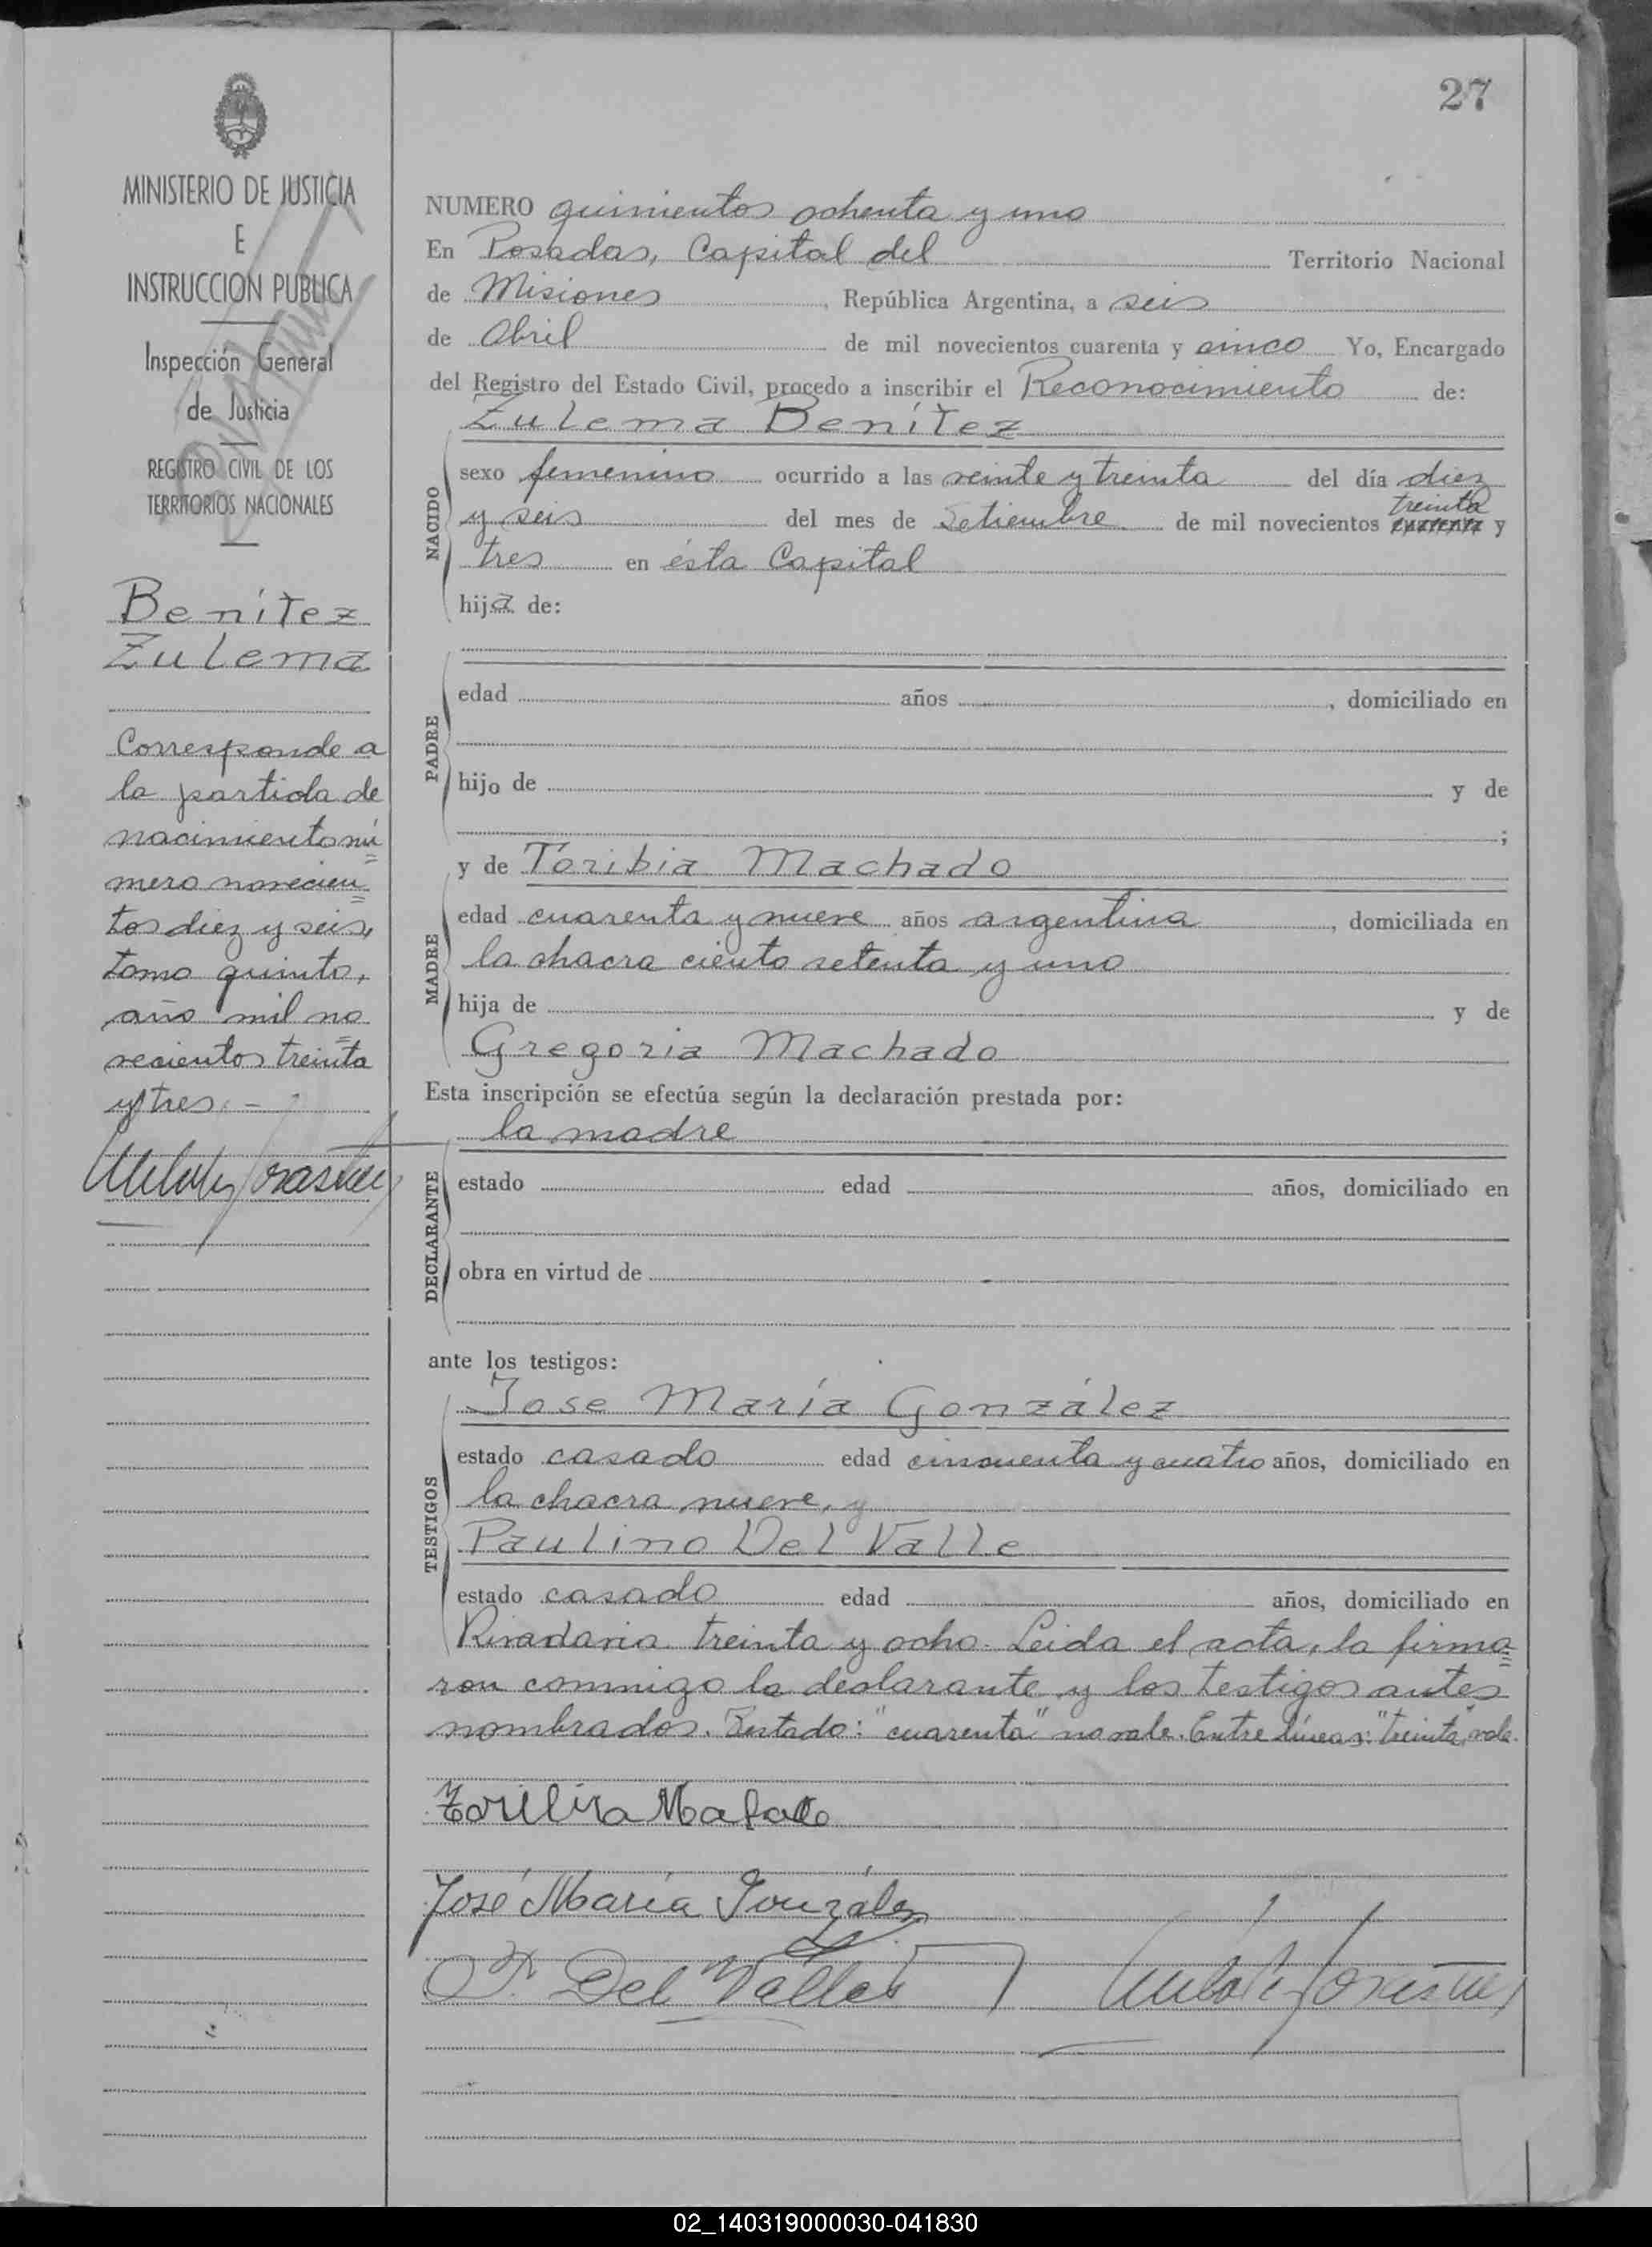 27
MINISTERIO DE JUSTICIA
E
INSTRUCCION PUBLICA
Inspección General
de Justicia
REGISTRO CIVIL DE LOS
TERRITORIOS NACIONALES
Benítez
Zulema
Corresponde a
la partida de
nacimiento nú=
mero novecien=
tos diez y seis,
tomo quinto,
año mil no=
vecientos treinta
y tres.-
NUMERO quinientos ochenta y uno
En Posadas, Capital del Territorio Nacional
de Misiones, República Argentina, a seis
de Abril de mil novecientos cuarenta y cinco Yo, Encargado
del Registro del Estado Civil, procedo a inscribir el Reconocimiento de:
Zulema Benítez
NACIDO
sexo femenino ocurrido a las veinte y treinta del día diez
treinta
y seis del mes de Setiembre de mil novecientos cuarenta y
tres en ésta Capital
hija de:
PADRE
edad años , domiciliado en
hijo de y de
;
y de Toribia Machado
MADRE
edad cuarenta y nueve años argentina, domiciliada en
la chacra ciento setenta y uno
hija de y de
Gregoria Machado
Esta inscripción se efectúa según la declaración prestada por:
la madre
DECLARANTE
estado edad años, domiciliado en
obra en virtud de
ante los testigos:
Jose María González
TESTIGOS
estado casado edad cincuenta y cuatro años, domiciliado en
la chacra nueve, y
Paulino Del Valle
estado casado edad años, domiciliado en
Rivadavia treinta y ocho. Leida el acta, la firma=
ron conmigo la declarante y los testigos antes
nombrados. Testado: "cuarenta" no vale. Entre líneas: "treinta" vale.
José María González
P. Del Valle
02_140319000030-041830